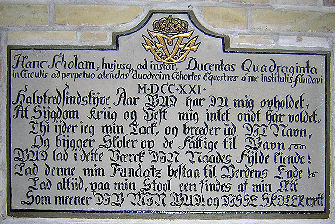 Hanc Scholam, hujusq, ad instar, Ducentas Quadraginta
in Circulis ad perpetuo alendas duodecim Cohortes Equestres a me Institutis fundavi
M·DCC·XXI·
Halvtredsindstyve Aar GUD har DU mig opholdet,
At Sygdom Krüg og Pest mig intet ondt har voldet,
Thi yder jeg min Tack, og breeder ud DIT Navn,
Og bygger Skoler op de fattige til Gavn
GUD lad i dette Verck DIN Naades Fylde kiende!
Lad denne min Fundatz bestaa til Verdens Ende!
Lad altid, paa min Stool een findes af min Æt
Som meener DIG MIN GUD og DISSE SKOLER ret